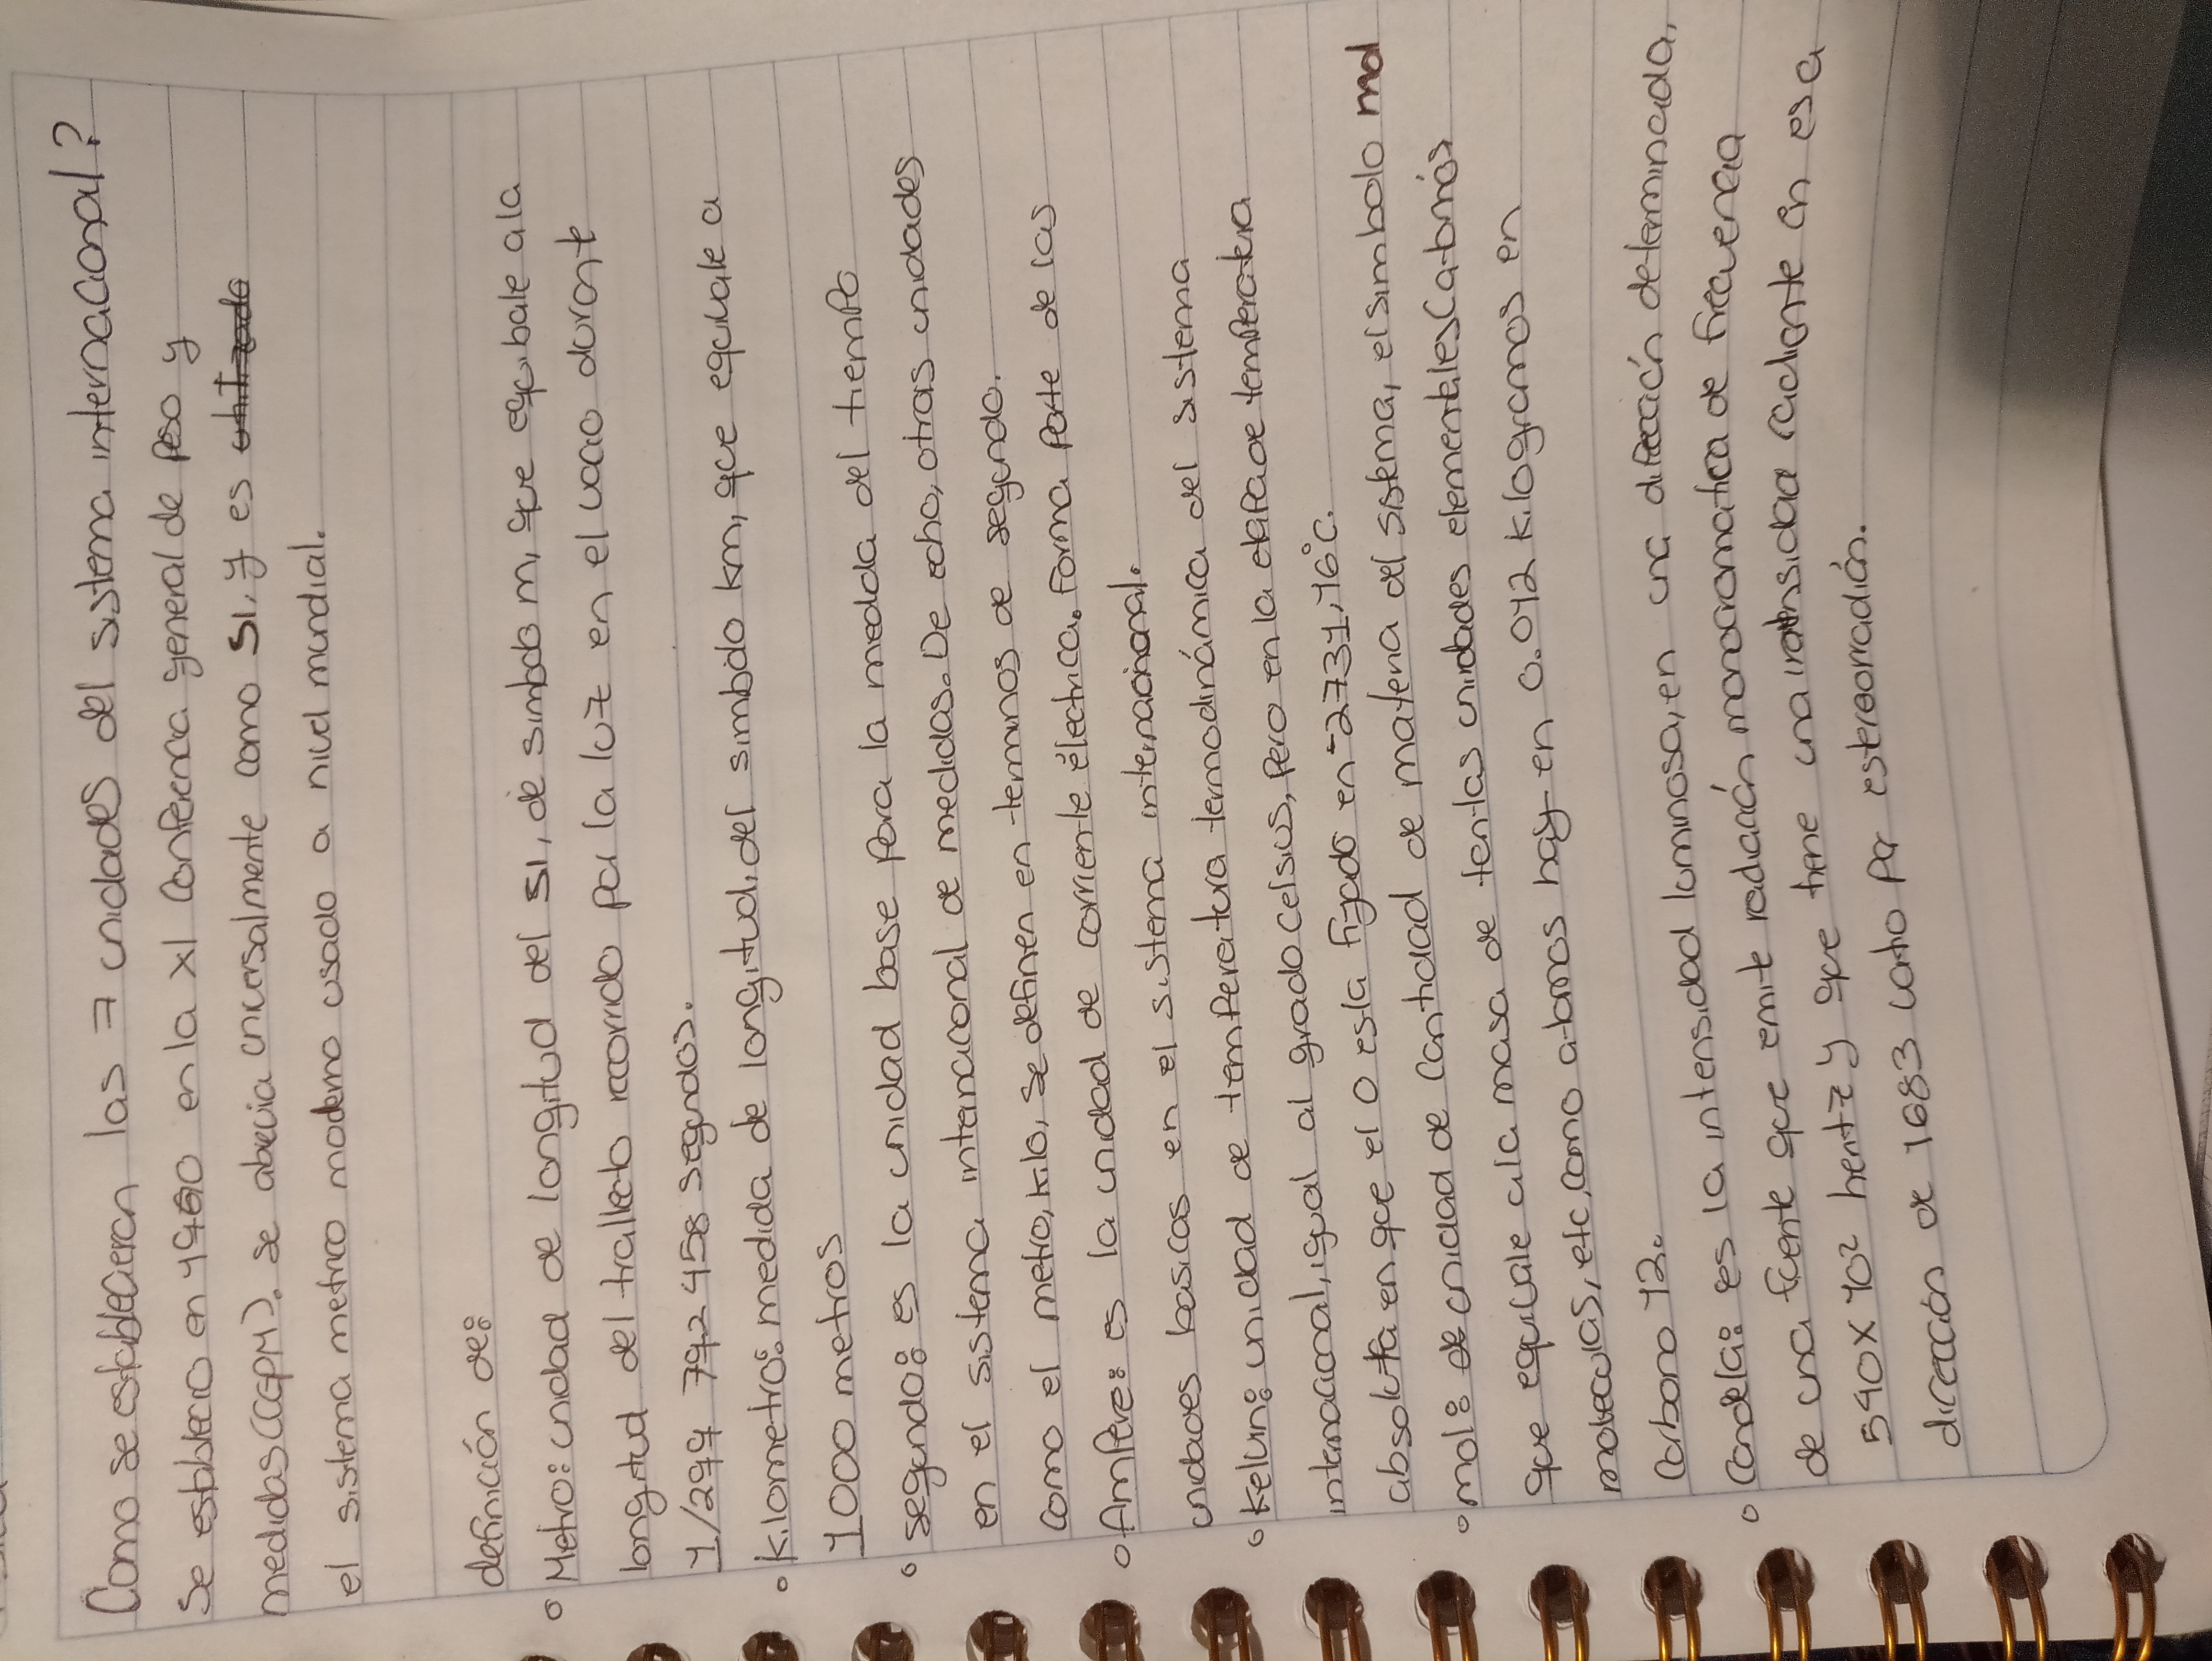 Como se establecieron las 7 unidades del sistema internacional?
Se establecio en 1960 en la XI conferencia general de peso y
medidas (CGPM). se abrevia universalmente como SI, y es
el sistema metrico moderno usado a nivel mundial.
definición de:
Metro: unidad de longitud del SI, de simbolo m, que equibale a la
longitud del trallecto recorrido por la luz en el vacio durante
1/299 792 458 segundos.
Kilometro: medida de longitud, del simbolo km, que equivale a
1000 metros
segundo: es la unidad base para la medida del tiempo
en el sistema internacional de medidas. De echo, otras unidades
como el metro, kilo, se definen en terminos de segundo.
Ampere: es la unidad de corriente électrica. Forma parte de las
unidades basicas en el sistema internacional.
Kelvin: unidad de temperatura termodinámica del sistema
internacional, igual al grado celsius, pero en la de temperatura
absoluta en que el 0 esta fijado en -2731,16°C.
mol: unidad de cantidad de materia del sistema, el simbolo mol
que equivale a la masa de tentas unidades elementales(atomos
moleculas, etc, como atomos hay en 0.012 kilogramos en
Carbono 12.
Candela: es la intensidad luminosa, en una dirección determinada,
de una fuente que emite radiación monocromatica de frecuencia
540x10² hentz y que tiene una intensidad radiente en esa
dirección de 1683 watio por estereorradián.